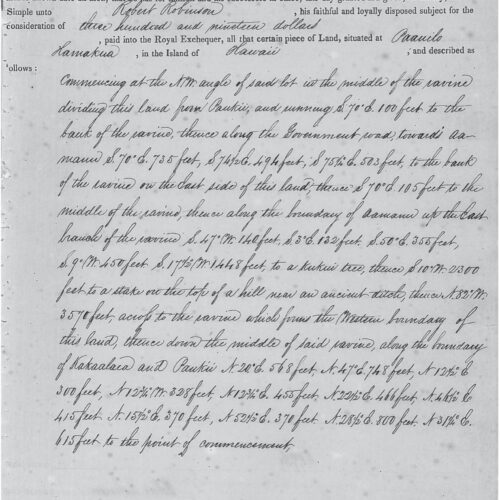 Simple unto Robert Robinson, his faithful and loyally disposed subject for the
consideration of three hundred and nineteen dollars
, paid into the Royal Exchequer, all that certain piece of Land, situated at Paauilo
Hamakua, in the Island of Hawaii ; and described as
follows :
Commencing at the N.W. angle of said lot in the middle of the ravine
dividing this land from Paukiu, and running S. 70° E. 100 feet to the
bank of the ravine, thence along the Government road, towards Aa-
manu S. 70° E. 735 feet, S 74½ E. 494 feet, S 75½° E. 503 feet, to the bank
of the ravine on the East side of this land, thence S 70° E 105 feet to the
middle of the ravine, thence along the boundary of Aamanu up the East
branch of the ravine S. 47° W. 140 feet, S 3° E. 132 feet, S. 50° E. 355 feet,
S. 9° W. 450 feet S. 17½° W. 1448 feet, to a kukui tree, thence S 10° W. 2300
feet to a stake on the top of a hill near an ancient ditch, thence N. 82° W.
3570 feet, across to the ravine which forms the Western boundary of
this land, thence down the middle of said ravine, along the boundary
of Kakaalaea and Paukiu N. 26° E. 568 feet N. 47° E. 748 feet, N 12½° E
300 feet, N 12¾° W. 328 feet, N 12¾° E. 455 feet, N 22½° E. 466 feet N. 46½° E
415 feet N. 15½° E. 370 feet, N 52½° E. 370 feet N. 28½° E. 800 feet N 31½° E.
615 feet to the point of commencement,